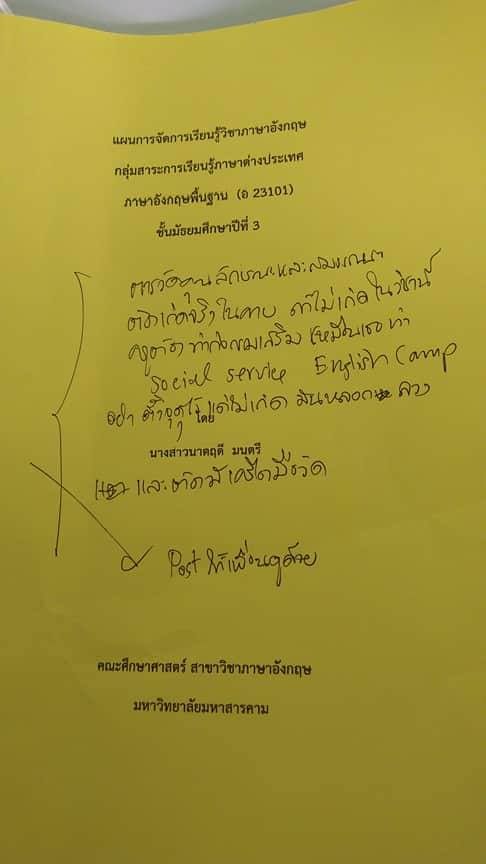 แผนการจัดการเรียนรู้วิชาภาษาอังกฤษ
กลุ่มสาระการเรียนรู้ภาษาต่างประเทศ
ภาษาอังกฤษพื้นฐาน (อ 23101)
ชั้นมัธยมศึกษาปีที่ 3
การวัดคุณลักษณะและสมรรถนะ
ต้องเกิดจริงในคาบ ถ้าไม่เกิด ในวิชานี้
ครูต้อง ทำกิจกรรมเสริม เหมือนเธอทำ
Social service English Camp
อย่า แต่ไม่เกิด มันหลอกลวง
โดย
นางสาวนาตฤดี มนตรี
และต้องมีเครื่องมือวัด
Post ให้เพื่อนดูด้วย
คณะศึกษาศาสตร์ สาขาวิชาภาษาอังกฤษ
มหาวิทยาลัยมหาสารคาม